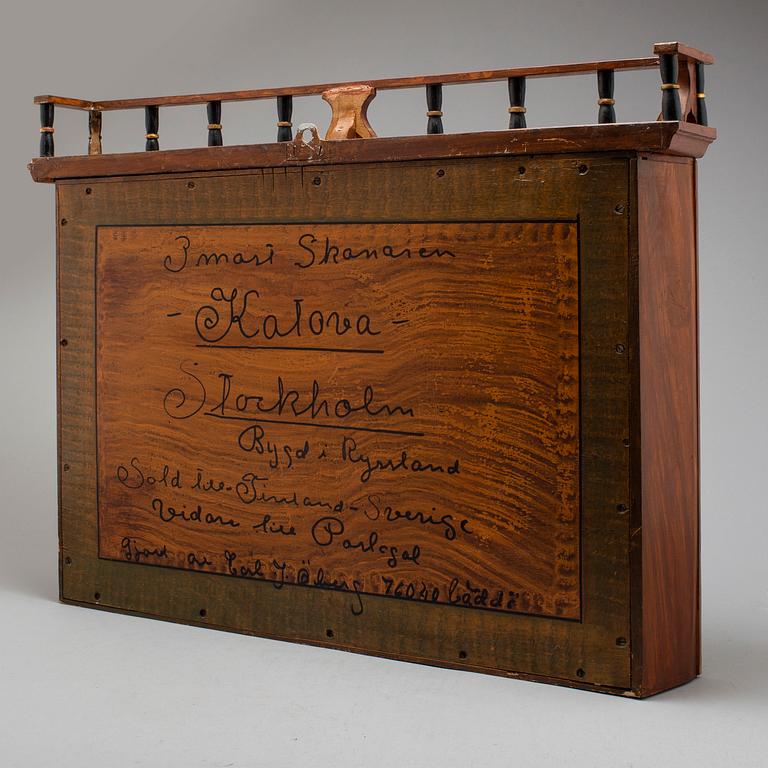 3 mast Skonaren
- Katova -
Stockholm
Bygd i Ryssland
Såld till Finland - Sverige
Vidare till Portugal
Gjord av J. Öberg 76040 Väddö